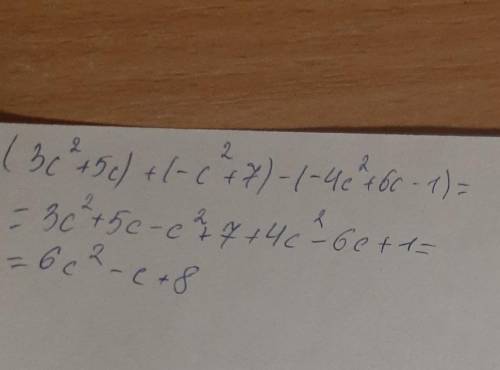 (3c²+5c)+(-c²+7)-(-4c²+6c-1)=
=3c²+5c-c²+7+4c²-6c+1=
=6c²-c+8